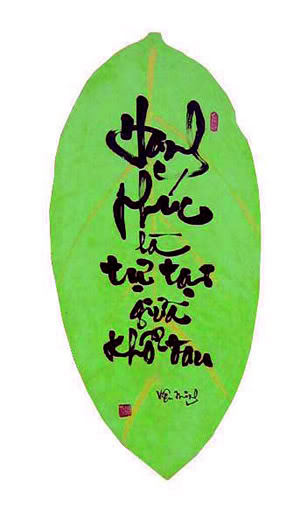 Hạnh
phúc
là
tự tại
giữa
khổ đau
Viên Minh